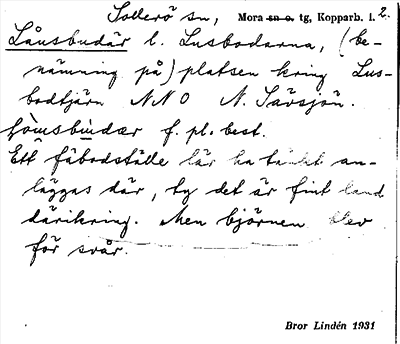 Sollerö sn, Mora sn o. tg, Kopparb. l. 2.
Låusbudär l. Lusbodarna, (be-
nämning på) platsen kring Lus-
bodtjärn NNO N. Särsjön.
f. pl. best.
Ett fäbodställe lär ha tänkt an-
läggas där, ty det är fint land
däri kring. Men björnen blev
för svår.
Bror Lindén 1931